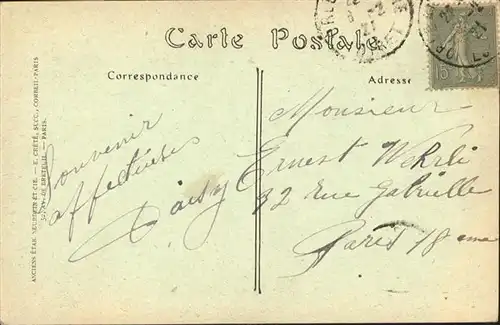 Carte Postale
Correspondance
Adresse
Souvenir
affectueux
Daisy
Monsieur
Ernest Wehrli
32 rue Gabrielle
Paris 18 eme
ANCIENS ÉTAB. NEURDEIN ET CIE. — E. CRÉTÉ, SUCC., CORBEIL-PARIS
DE BRETEUIL. — PARIS.
15